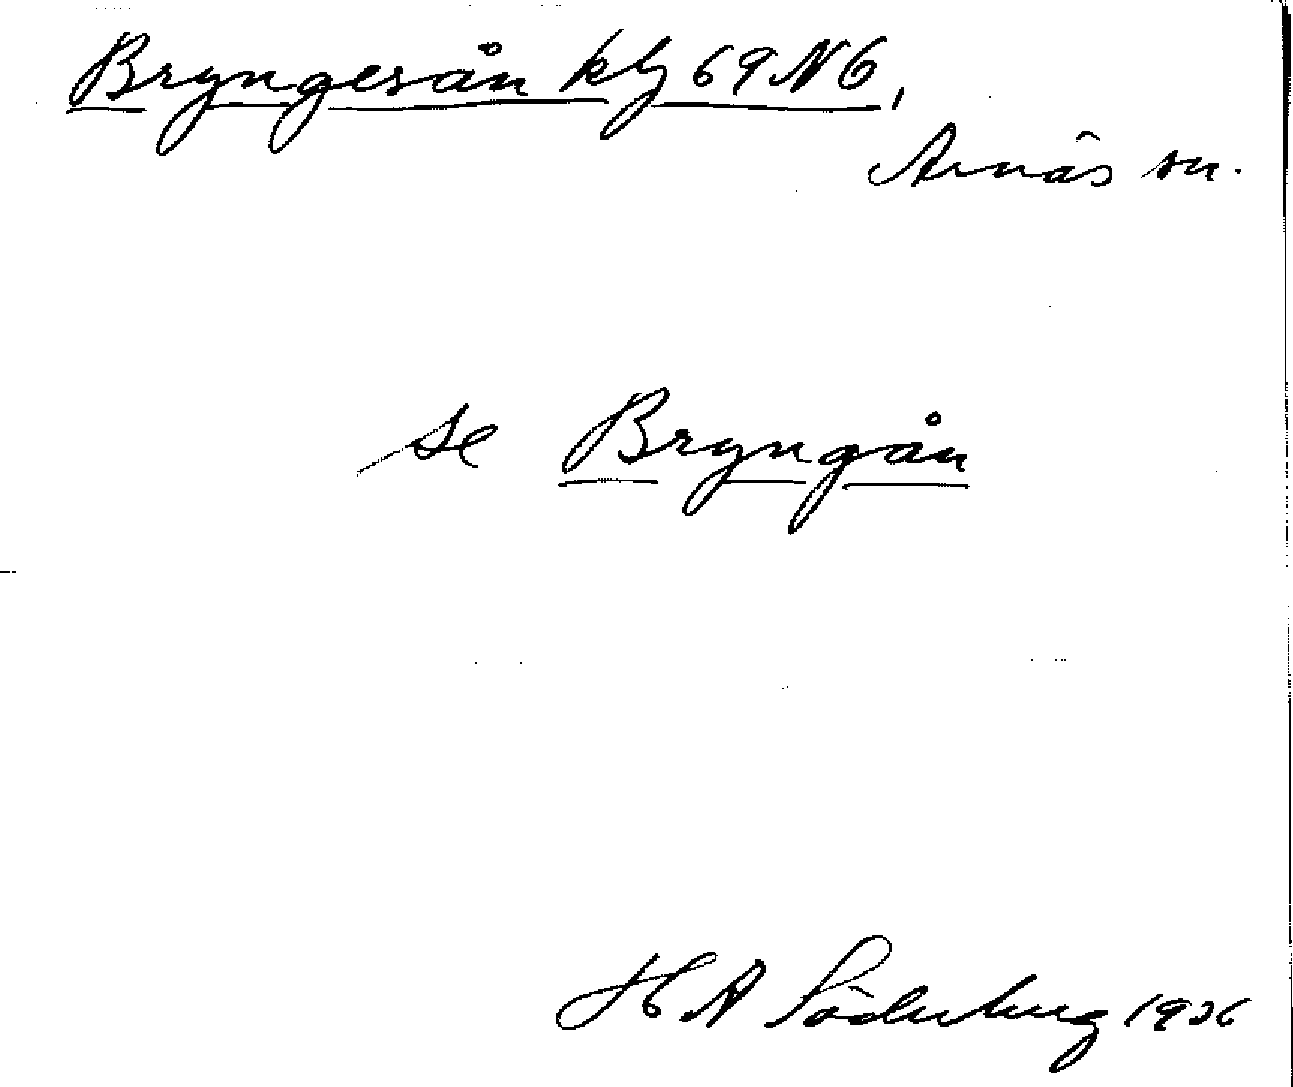 Bryngesån kbl 69 N6,
Arnäs sn.
se Bryngån
H A Söderberg 1936